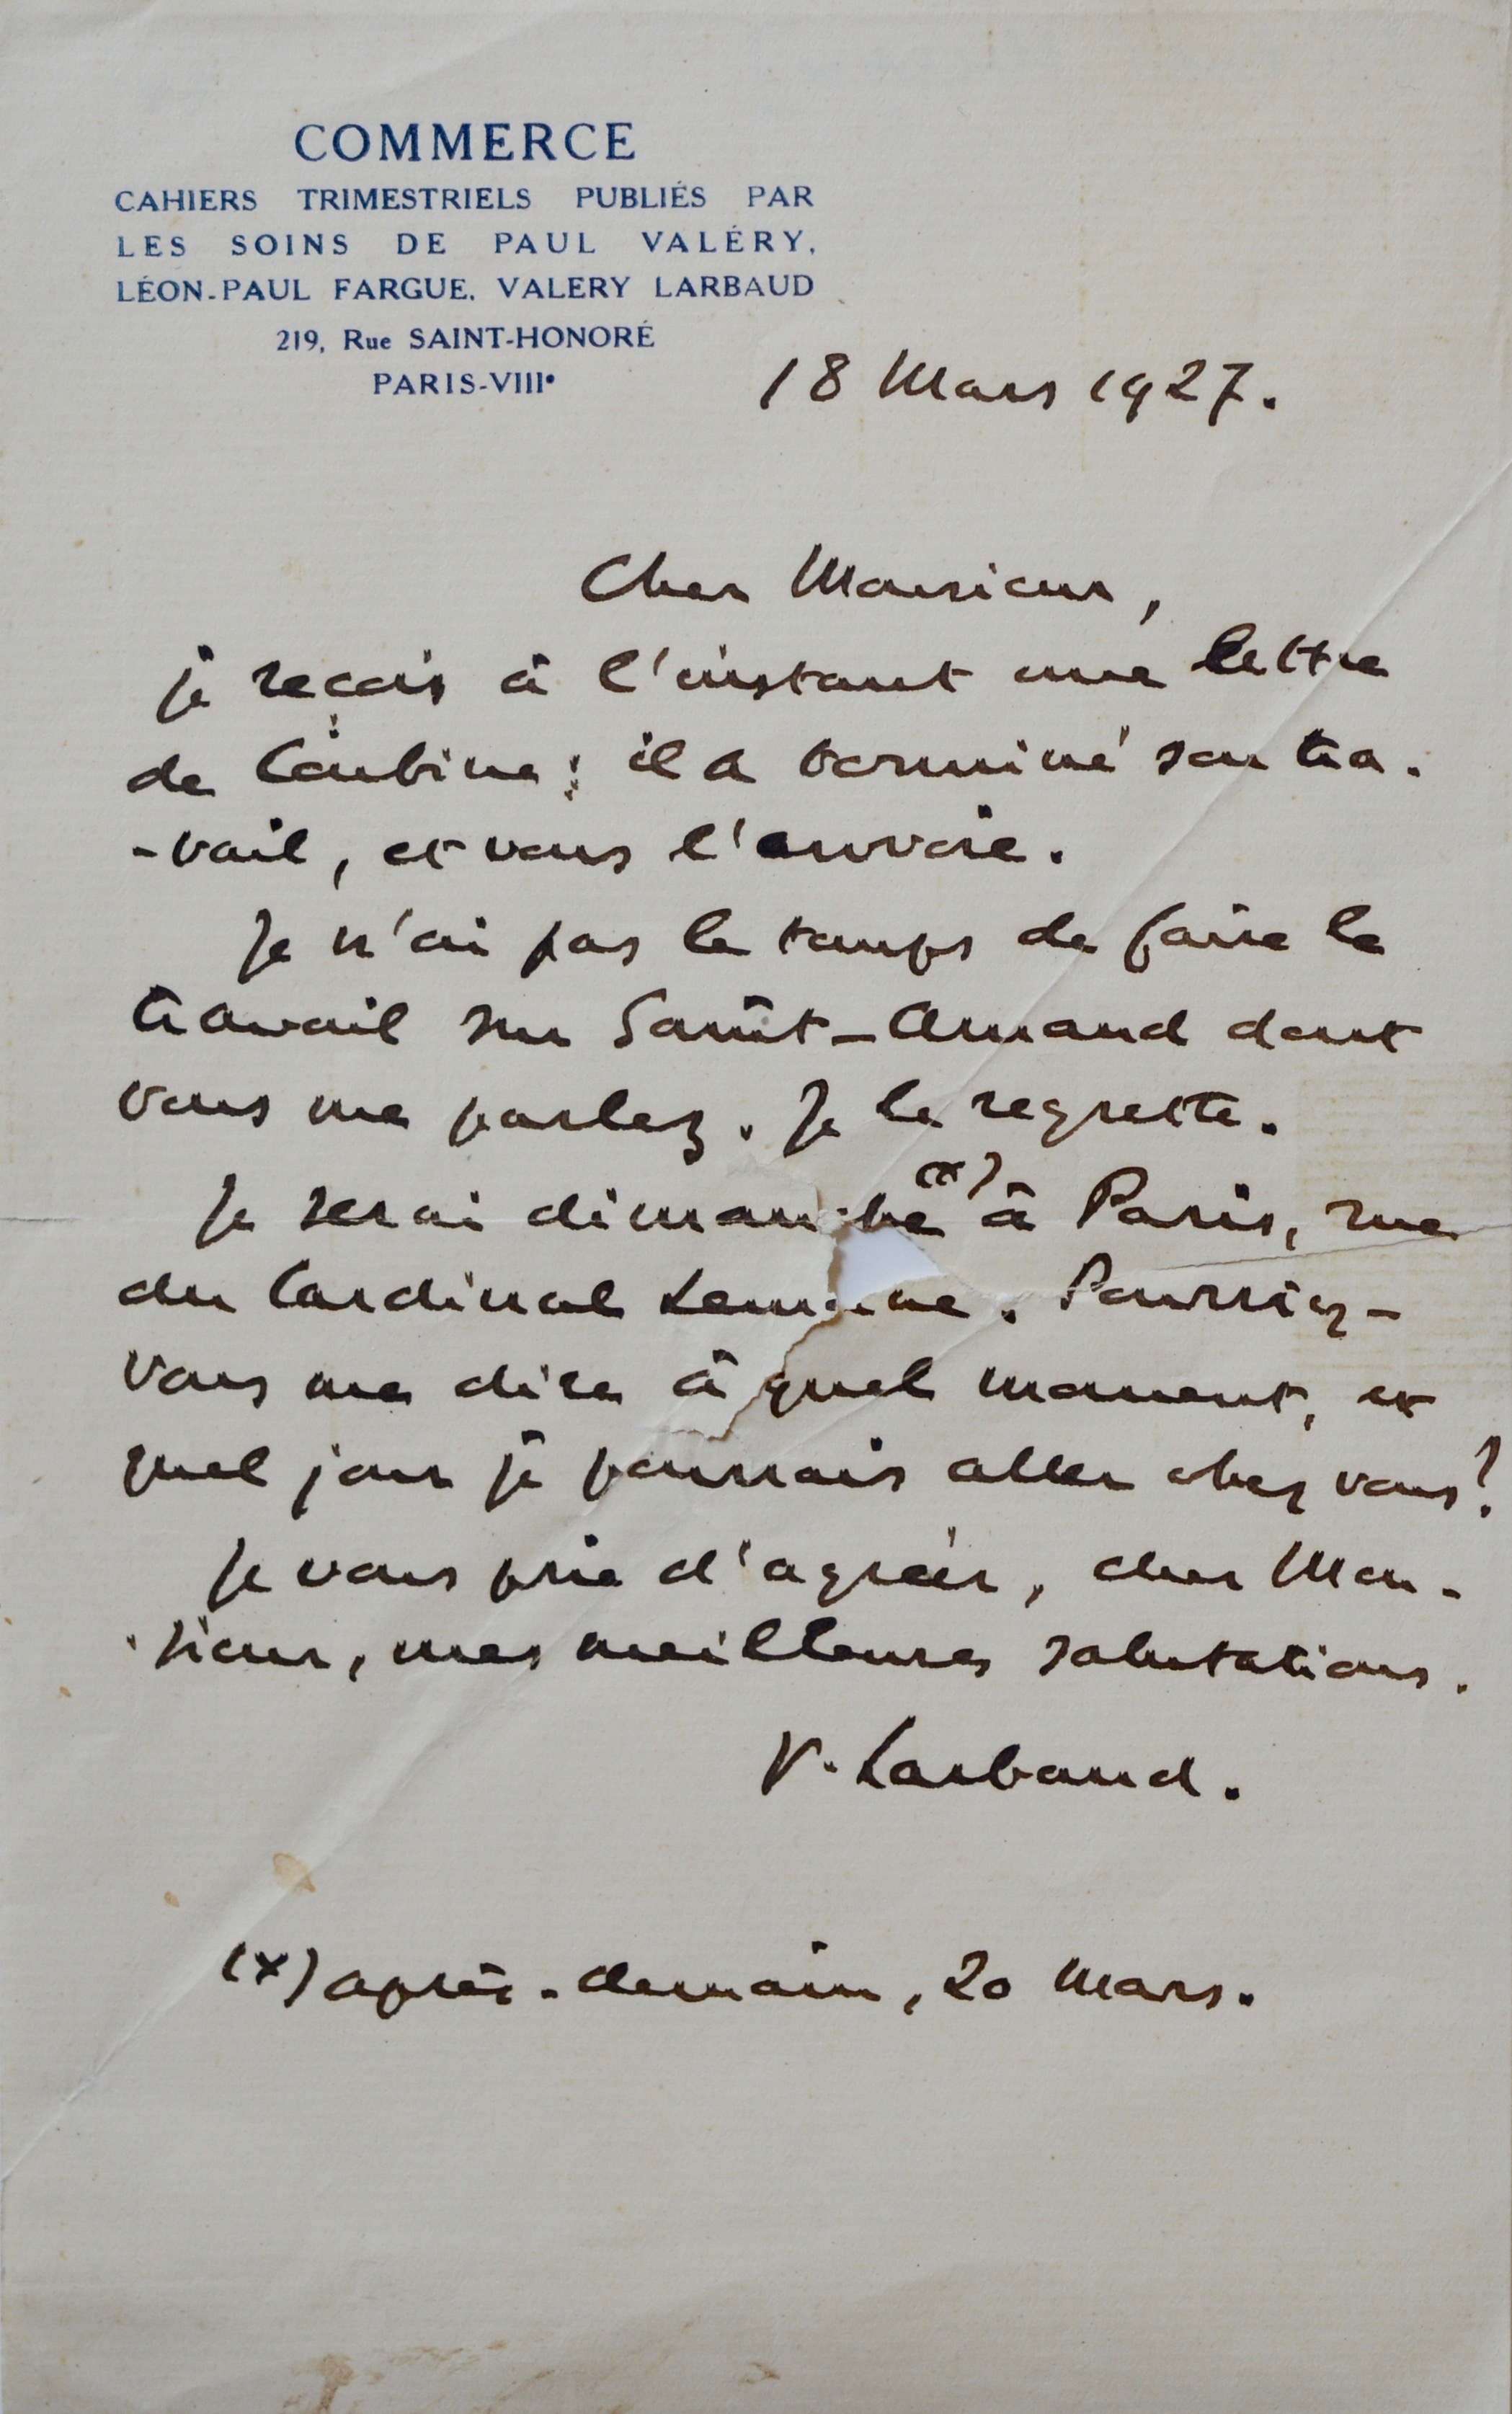 COMMERCE
CAHIERS TRIMESTRIELS PUBLIÉS PAR
LES SOINS DE PAUL VALÉRY,
LÉON-PAUL FARGUE, VALERY LARBAUD
219, Rue SAINT-HONORÉ
PARIS-VIIIe
18 Mars 1927.
Cher Monsieur,
je reçois à l'instant une lettre
de il a terminé son tra-
-vail, et vous l'envoie.
Je n'ai pas le temps de faire le
travail sur Saint-Amand dont
vous me parlez. Je le regrette.
Je serai dimanche (x) à Paris, rue
du Cardinal Lemoine. Pourriez-
vous me dire à quel moment, et
quel jour je pourrais aller chez vous?
Je vous prie d'agréer, cher Mon-
-sieur, mes meilleures salutations.
V. Larbaud.
(x) après-demain, 20 Mars.